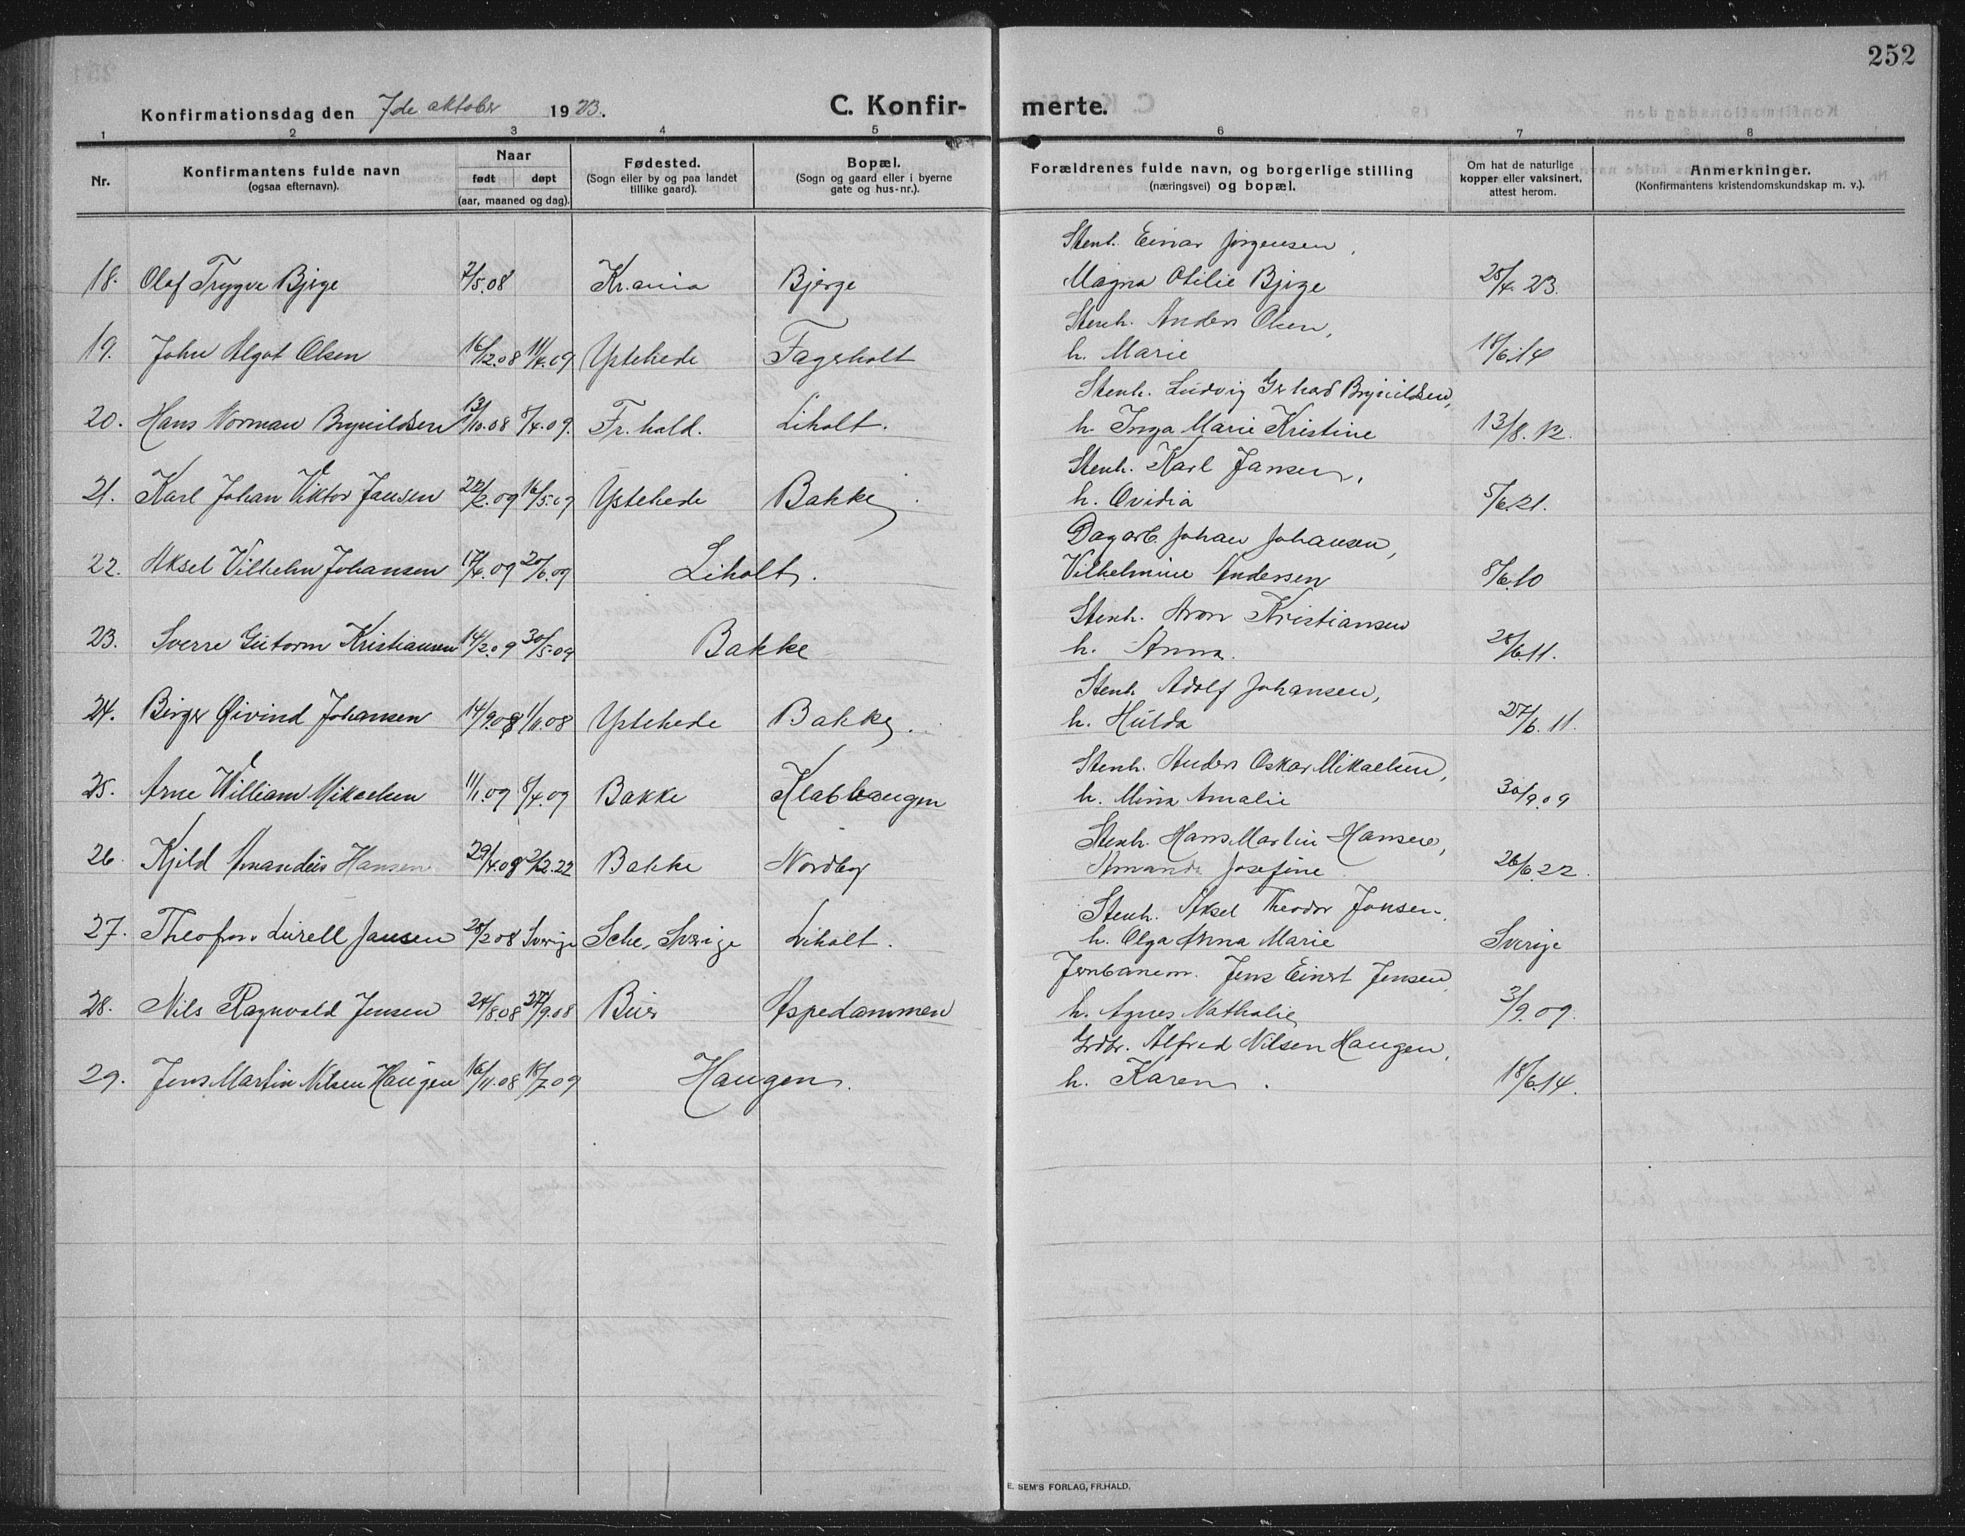 252
Konfirmationsdag den 7de oktober 1923. C. Konfir- merte.
1 2 3 4 5 6 7 8
Nr. Konfirmantens fulde navn (ogsaa efternavn). Naar født døpt (aar, maaned og dag). Fødested. (Sogn eller by og paa landet tillike gaard). Bopæl. (Sogn og gaard eller i byerne gate og hus-nr.). Forældrenes fulde navn, og borgerlige stilling (næringsvei) og bopæl. Om hat de naturlige kopper eller vaksinert, attest herom. Anmerkninger. (Konfirmantens kristendomskundskap m. v.).
Stenh. Einar Jørgensen,
18. Olaf Trygve Bjige 7/5.08 Kr.ania Bjerge Magna Otilie Bjige 25/4.23.
Stenh. Anders Olsen,
19. John Algot Olsen 16/12.08 11/4.09 Ystehede Fagerholt h. Marie 18/6.14
Stenh. Ludvig Gerhard Brynildsen,
20. Hans Norman Brynildsen 13/10.08 8/4.09. Fr.hald. Liholt. h. Inga Marie Kristine 13/8.12.
Stenh. Karl Jansen,
21. Karl Johan Viktor Jansen 22/2.09 16/5.09 Ystehede Bakke. h. Ovidia 5/6.21.
Dagarb. Johan Johansen,
22. Aksel Vilhelm Johansen 17/4.09 20/6.09 Liholt. Vilhelmine Andersen 8/6.10
Stenh. Aron Kristiansen
23. Sverre Gutorm Kristiansen 14/2.09 30/5.09 Bakke h. Anna. 28/6.11.
Stenh. Adolf Johansen,
24. Birger Øivind Johansen 14/9.08 1/11.08 Ystehede Bakke. h. Hulda 27/6.11.
Stenh. Anders Oskar Mikaelsen,
25. Arne William Mikaelsen 11/1.09 8/4.09 Bakke Klabhaugen h. Mina Amalie 30/9.09
Stenh. Hans Martin Hansen,
26. Kjild Amandus Hansen 29/4.08 2/12.22 Bakke Nordby Amanda Josefine 26/6.22.
Stenh. Aksel Theodor Jansen.
27. Lurell Jansen 28/2.08 Sverige Sverige Liholt. h. Olga Anna Marie Sverige
Jernbanem. Jens Einert Jensen,
28. Nils Ragnvald Jensen 24/8.08 27/9.08 Bier Aspedammen h. Agnes Nathalie 3/9.09.
Grdbr. Alfred Nilsen Haugen,
29. Jens Martin Nilsen Haugen 16/11.08 18/7.09 Haugen. h. Karen. 18/6.14.
E. SEM'S FORLAG, FR.HALD.